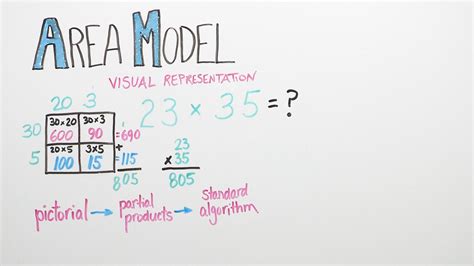 AREA MODEL
VISUAL REPRESENTATION
20 3 23 × 35 = ?
30 30×20 30×3
600 90 = 690
5 20×5 3×5 +
100 15 = 115
805
23
× 35
805
pictorial → partial products → standard algorithm